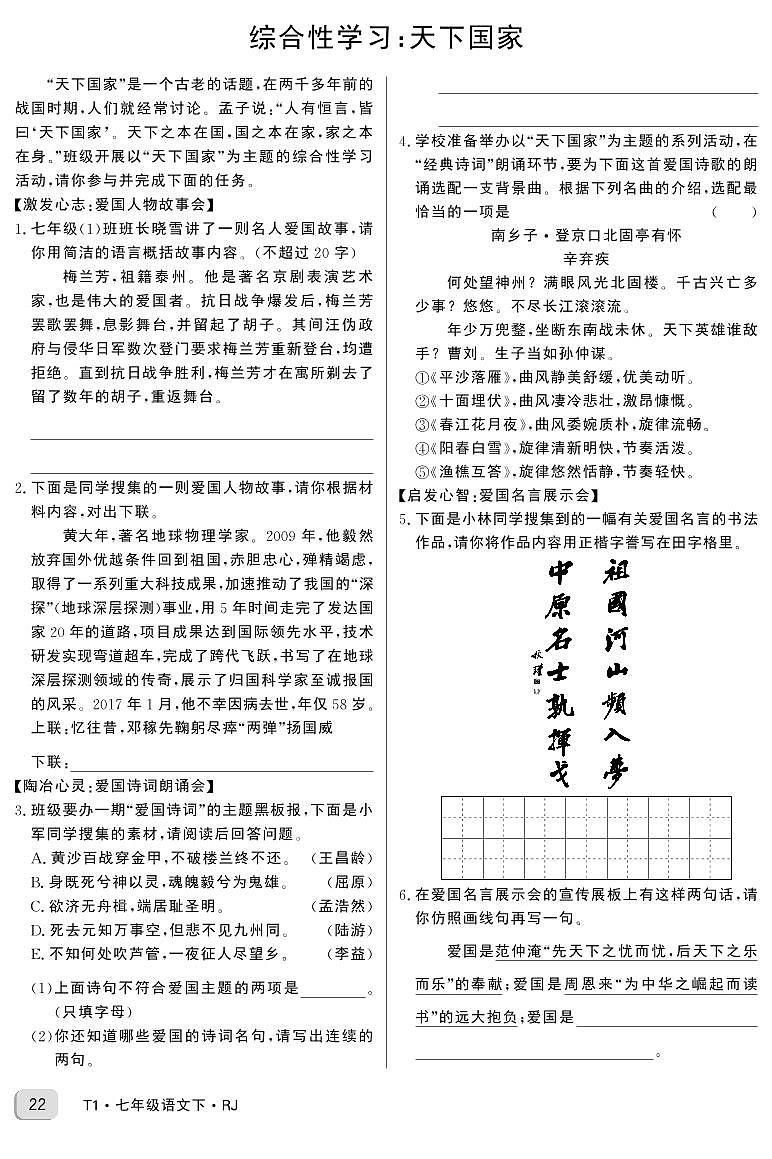 综合性学习:天下国家
“天下国家”是一个古老的话题,在两千多年前的
战国时期,人们就经常讨论。孟子说:“人有恒言,皆
曰‘天下国家’。天下之本在国,国之本在家,家之本
在身。”班级开展以“天下国家”为主题的综合性学习
活动,请你参与并完成下面的任务。
【激发心志:爱国人物故事会】
1. 七年级(1)班班长晓雪讲了一则名人爱国故事,请
你用简洁的语言概括故事内容。(不超过 20 字)
梅兰芳,祖籍泰州。他是著名京剧表演艺术
家,也是伟大的爱国者。抗日战争爆发后,梅兰芳
罢歌罢舞,息影舞台,并留起了胡子。其间汪伪政
府与侵华日军数次登门要求梅兰芳重新登台,均遭
拒绝。直到抗日战争胜利,梅兰芳才在寓所剃去了
留了数年的胡子,重返舞台。
2. 下面是同学搜集的一则爱国人物故事,请你根据材
料内容,对出下联。
黄大年,著名地球物理学家。2009 年,他毅然
放弃国外优越条件回到祖国,赤胆忠心,殚精竭虑,
取得了一系列重大科技成果,加速推动了我国的“深
探”(地球深层探测)事业,用 5 年时间走完了发达国
家 20 年的道路,项目成果达到国际领先水平,技术
研发实现弯道超车,完成了跨代飞跃,书写了在地球
深层探测领域的传奇,展示了归国科学家至诚报国
的风采。2017 年 1 月,他不幸因病去世,年仅 58 岁。
上联:忆往昔,邓稼先鞠躬尽瘁“两弹”扬国威
下联:
【陶冶心灵:爱国诗词朗诵会】
3. 班级要办一期“爱国诗词”的主题黑板报,下面是小
军同学搜集的素材,请阅读后回答问题。
A. 黄沙百战穿金甲,不破楼兰终不还。 (王昌龄)
B. 身既死兮神以灵,魂魄毅兮为鬼雄。 (屈原)
C. 欲济无舟楫,端居耻圣明。 (孟浩然)
D. 死去元知万事空,但悲不见九州同。 (陆游)
E. 不知何处吹芦管,一夜征人尽望乡。 (李益)
(1)上面诗句不符合爱国主题的两项是 。
(只填字母)
(2)你还知道哪些爱国的诗词名句,请写出连续的
两句。
4. 学校准备举办以“天下国家”为主题的系列活动,在
“经典诗词”朗诵环节,要为下面这首爱国诗歌的朗
诵选配一支背景曲。根据下列名曲的介绍,选配最
恰当的一项是 ( )
南乡子·登京口北固亭有怀
辛弃疾
何处望神州?满眼风光北固楼。千古兴亡多
少事?悠悠。不尽长江滚滚流。
年少万兜鍪,坐断东南战未休。天下英雄谁敌
手?曹刘。生子当如孙仲谋。
①《平沙落雁》,曲风静美舒缓,优美动听。
②《十面埋伏》,曲风凄冷悲壮,激昂慷慨。
③《春江花月夜》,曲风委婉质朴,旋律流畅。
④《阳春白雪》,旋律清新明快,节奏活泼。
⑤《渔樵互答》,旋律悠然恬静,节奏轻快。
【启发心智:爱国名言展示会】
5. 下面是小林同学搜集到的一幅有关爱国名言的书法
作品,请你将作品内容用正楷字誊写在田字格里。
祖國河山頻入夢
中原名士孰揮戈
秋瑾
6. 在爱国名言展示会的宣传展板上有这样两句话,请
你仿照画线句再写一句。
爱国是范仲淹“先天下之忧而忧,后天下之乐
而乐”的奉献;爱国是周恩来“为中华之崛起而读
书”的远大抱负;爱国是
。
22 T1·七年级语文下·RJ